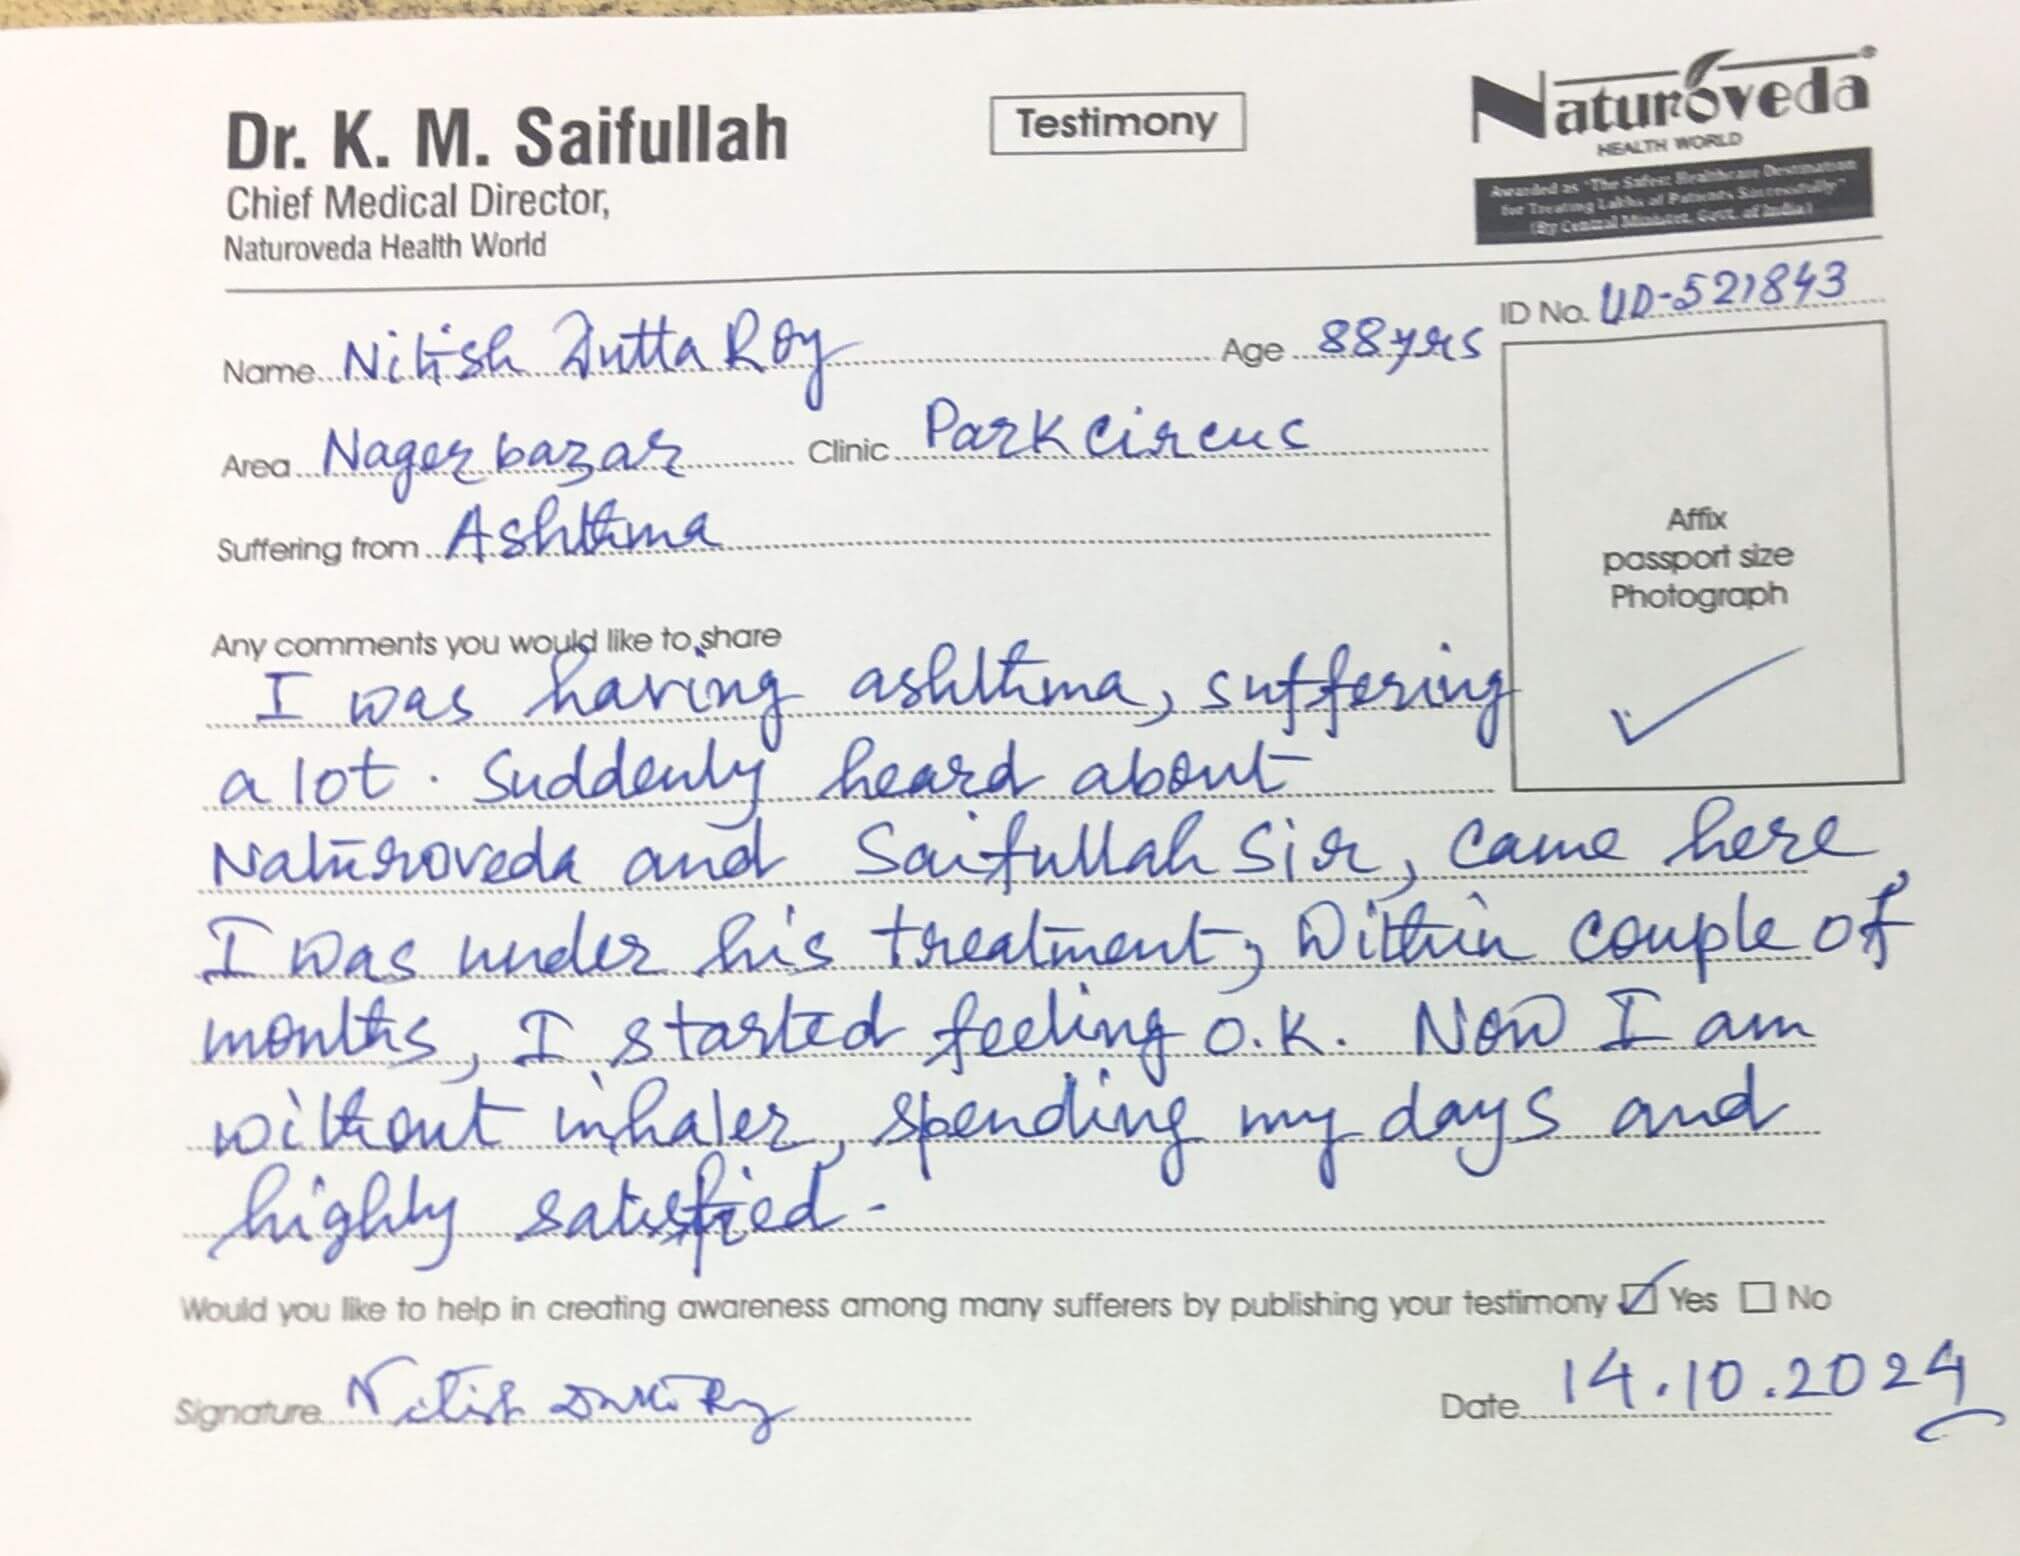 Dr. K. M. Saifullah
Chief Medical Director,
Naturoveda Health World
Testimony
Naturoveda®
HEALTH WORLD
Awarded as "The Safest Healthcare Destination
for Treating Lakhs of Patients Successfully"
(By Central Minister, Govt. of India)
ID No. UD-521843
Name Nitish Dutta Roy Age 88 yrs
Area Nager bazar Clinic Park circus
Suffering from Ashthma
Affix
passport size
Photograph
Any comments you would like to share
I was having ashthma, suffering
a lot. Suddenly heard about
Naturoveda and Saifullah Sir, came here
I was under his treatment, Within couple of
months, I started feeling O.K. Now I am
without inhaler, spending my days and
highly satisfied.
Would you like to help in creating awareness among many sufferers by publishing your testimony ☑ Yes ☐ No
Signature Nitish Dutta Roy Date 14.10.2024